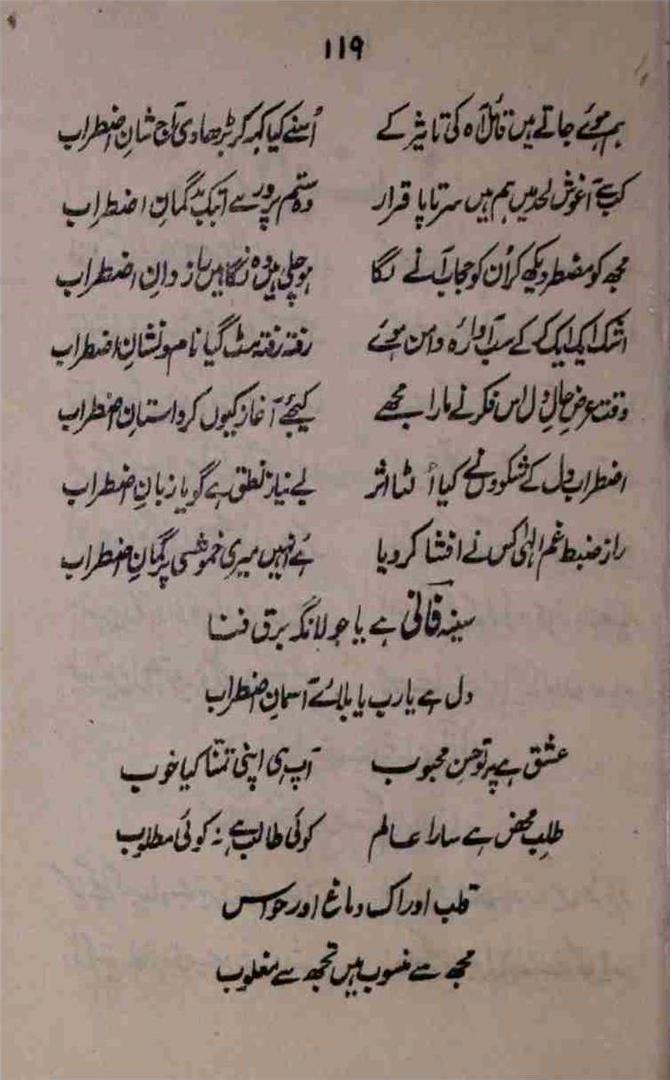 ۱۱۹
ہم ہوئے جاتے ہیں قائل آہ کی تاثیر کے اُسنے کیا کہہ کر بڑھا دی آج شانِ اضطراب
کب سے آغوش لحد میں ہم ہیں سرتاپا قرار وہ ستم پرور ہے ابتک بدگمانِ اضطراب
مجھ کو مضطر دیکھ کر اُن کو حجاب آنے لگا ہو چلی ہیں وہ نگاہیں رازدانِ اضطراب
اشک ایک ایک کر کے سب آوارہ دامن ہوئے رفتہ رفتہ مٹ گیا نام و نشانِ اضطراب
وقت عرضِ حالِ دل اس فکر نے مارا مجھے کیجئے آغاز کیوں کر داستانِ اضطراب
اضطراب دل کے شکووں نے کیا اُلٹا اثر بے نیاز نطق ہے گویا زبانِ اضطراب
راز ضبط غم الٰہی کس نے افشا کر دیا ہے اُنہیں میری خموشی پر گمانِ اضطراب
سینہ فانی ہے یا جولانگہ برق فنا
دل ہے یارب یا بلائے آسمانِ اضطراب
عشق ہے پرتو حسن محبوب آپ ہی اپنی تمنا کیا خوب
طلبِ محض ہے سارا عالم کوئی طالب ہے نہ کوئی مطلوب
قلب ادراک دماغ اور حواس
مجھ سے منسوب ہیں تجھ سے مغلوب